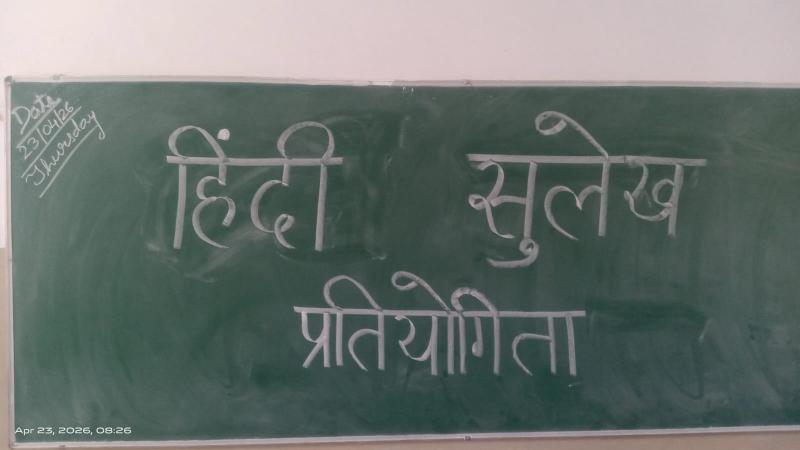 Date
23/04/26
Thursday
हिंदी सुलेख
प्रतियोगिता
Apr 23, 2026, 08:26